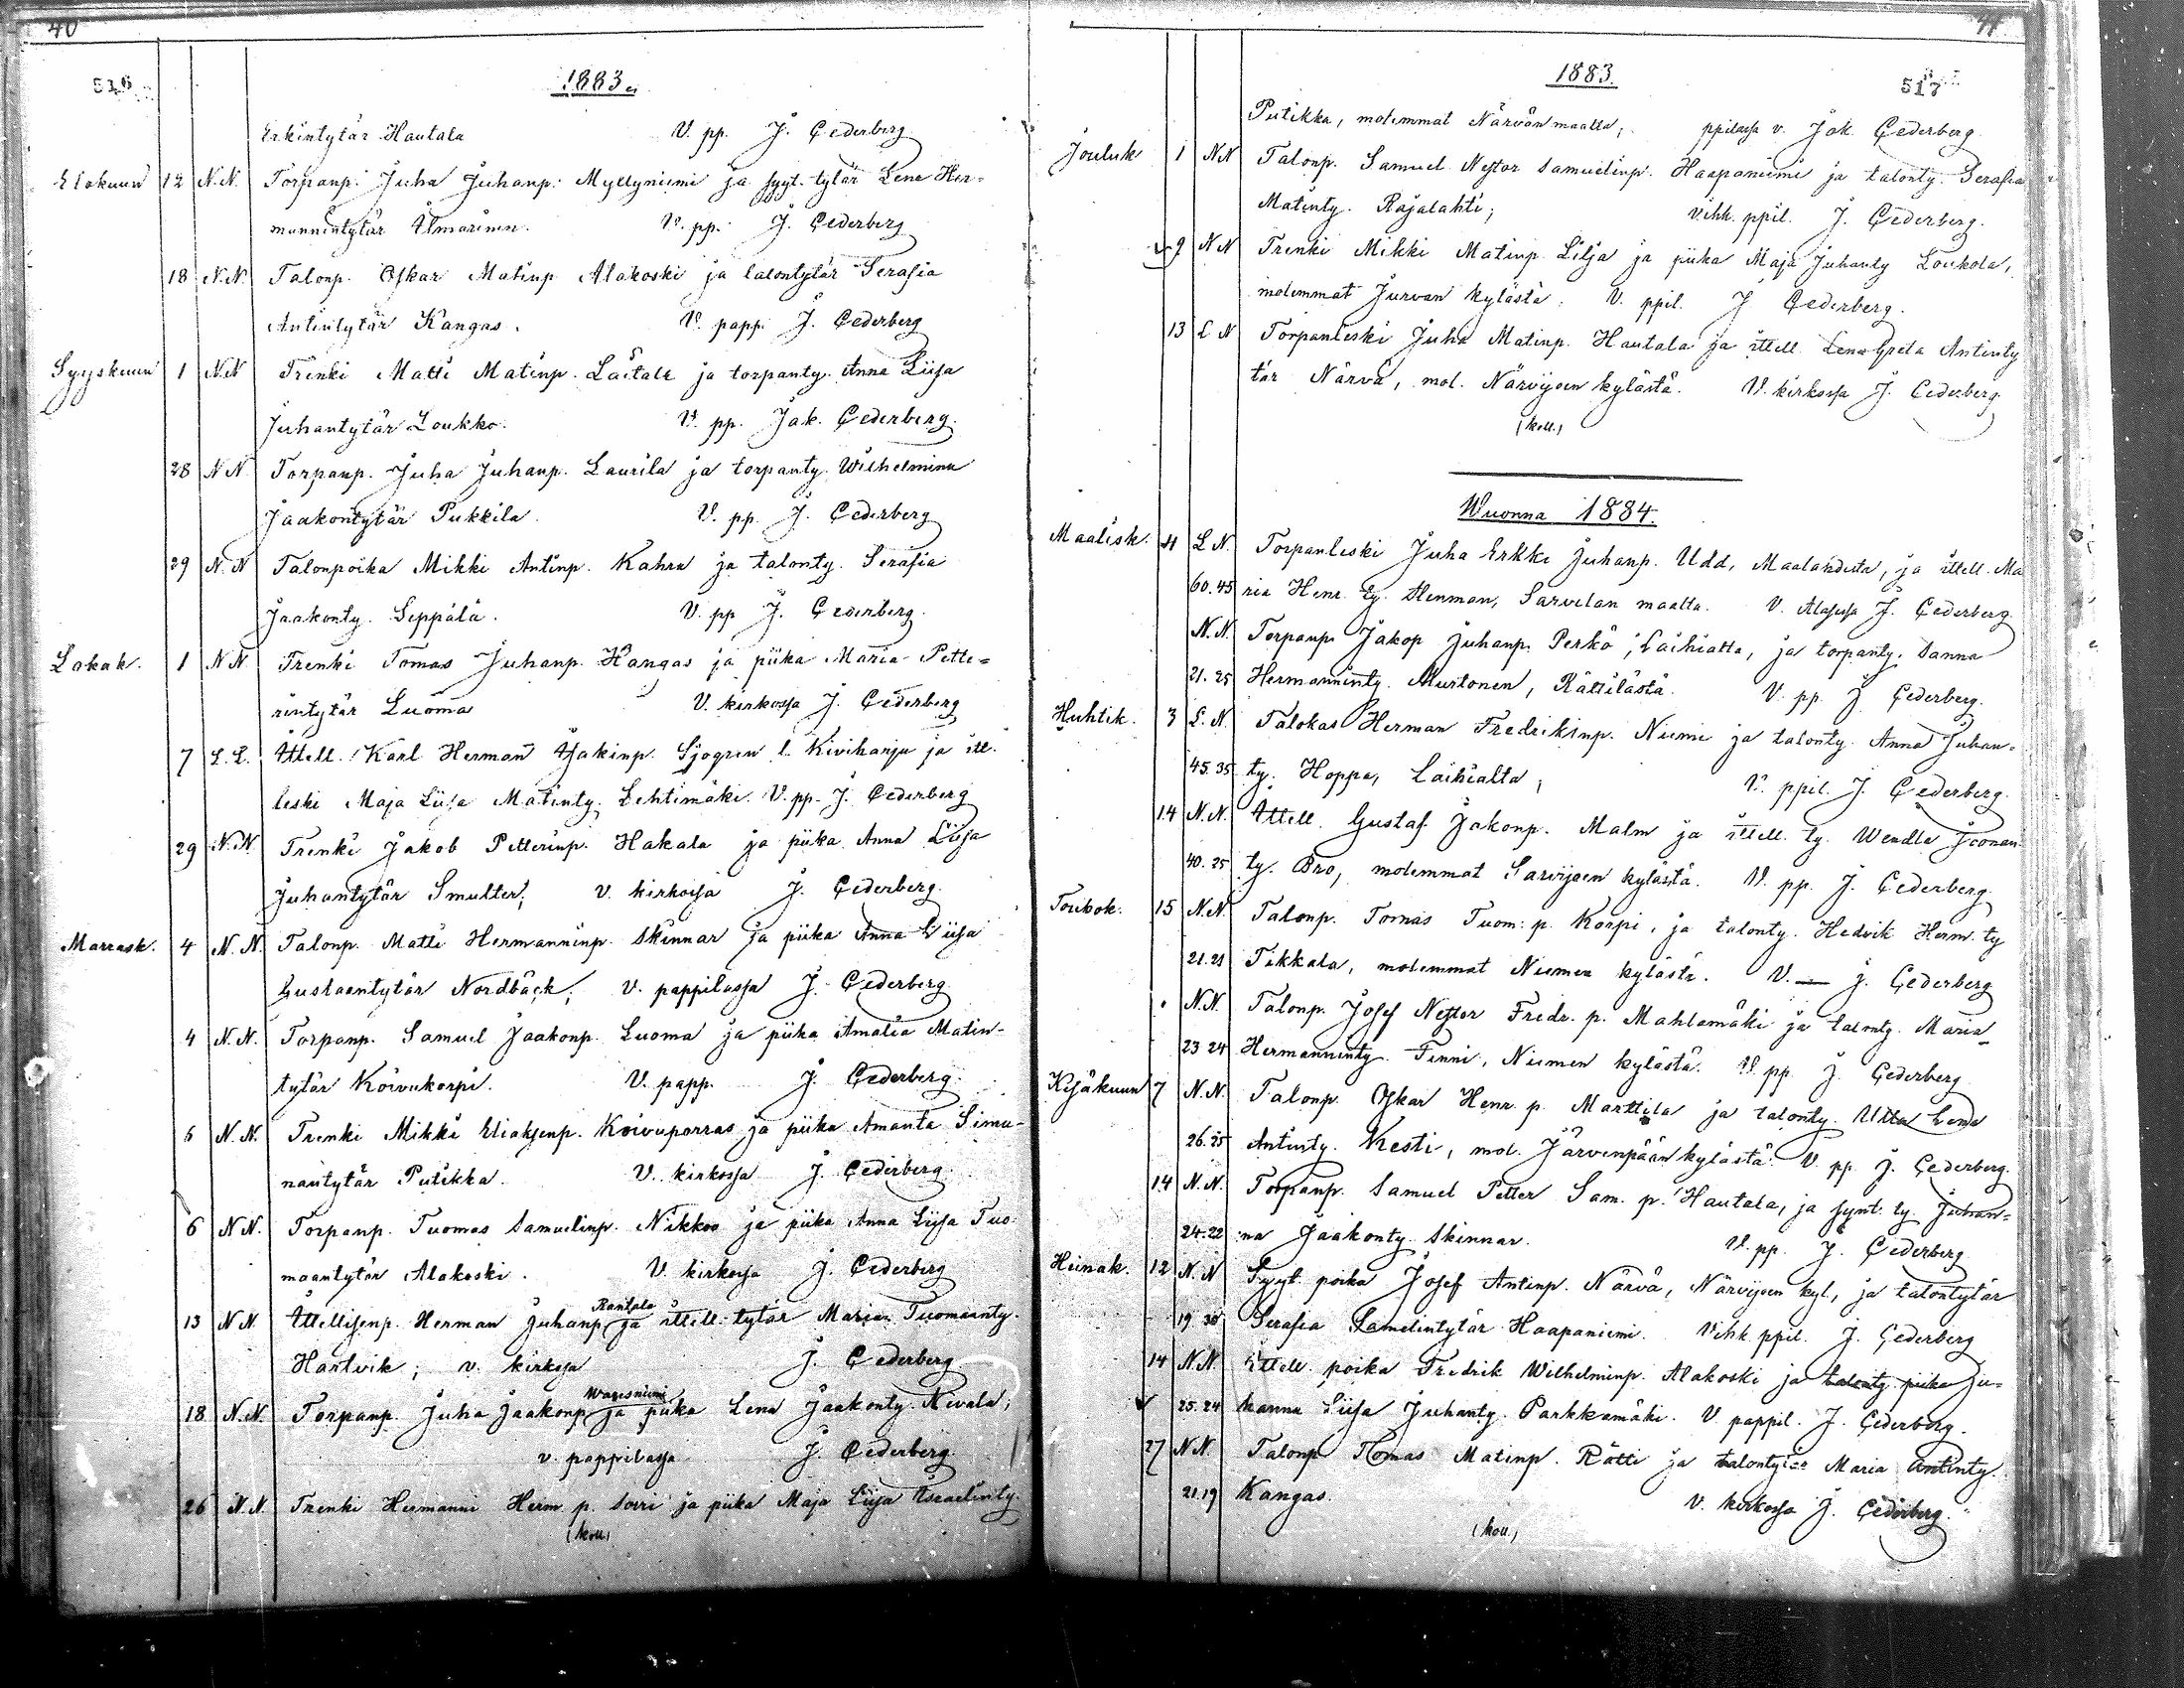 40
516
1883
Erkintytär Hautala V. pp. J. Cederberg
Elokuun 12 N.N. Torpanp. Juha Juhanp. Myllyniemi ja syyt. tytär Lena Her-
mannintytär Ilmarinen. V. pp. J. Cederberg
18 N.N. Talonp. Oskar Matinp Alakoski ja talontytär Serafia
Antintytär Kangas. V. papp. J. Cederberg
Syyskuun 1 N.N Trenki Matti Matinp. Laitala ja torpanty. Anna Liisa
Juhantytär Loukko. V. pp. Jak. Cederberg.
28 N N Torpanp. Juha Juhanp. Laurila ja torpanty. Wilhelmina
Jaakontytär Pukkila. V. pp. J. Cederberg
29 N.N Talonpoika Mikki Antinp. Kahra ja talonty. Serafia
Jaakonty. Seppälä. V. pp J. Cederberg.
Lokak. 1 N N Trenki Tomas Juhanp. Kangas ja piika Maria Pette=
rintytär Luoma V. kirkossa J. Cederberg
7 L.L. Ittell. Karl Herman Isakinp. Sjögren l. Kiviharju ja itt.
leski Maja Liisa Matinty. Lehtimäki. V. pp. J. Cederberg
29 N.N. Trenki Jakob Petterinp. Hakala ja piika Anna Liisa
Juhantytär Smulter; v. kirkossa J. Cederberg.
Marrask. 4 N.N. Talonp. Matti Hermanninp. Skinnar ja piika Anna Liisa
Gustaantytär Nordbäck; v. pappilassa J. Cederberg
4 N.N. Torpanp. Samuel Jaakonp. Luoma ja piika Amalia Matin-
tytär Koivukorpi. V. papp. J. Cederberg.
5 N.N. Trenki Mikki Eliaksenp. Koivuporras ja piika Amanta Simu-
nantytär Putikka. V. kirkossa J. Cederberg.
6 N N. Torpanp. Tuomas Samuelinp. Nikkoo ja piika Anna Liisa Tuo-
maantytär Alakoski. V. kirkossa J. Cederberg
Rantala
13 N N. Ittellisenp. Herman Juhanp. ja ittell. tytär Maria Tuomaanty.
Hartvik; v. kirkossa J. Cederberg
Waresniemi
18 N.N. Torpanp. Juha Jaakonp ja piika Lena Jaakonty. Kivala;
v. pappilassa J. Cederberg.
26 N.N. Trenki Hermanni Herm. p. Sorri ja piika Maja Liisa Israelinty.
(koll.)
41
1883.
517
Putikka, molemmat Närvän maalta; ppilassa v. Jak. Cederberg.
Jouluk 1 N N Talonp. Samuel Nestor Samuelinp. Haapaniemi ja talonty. Serafia
Matinty. Rajalahti; vihk. ppil. J. Cederberg.
9 N N Trenki Mikki Matinp Lilja ja piika Maja Juhanty Loukola,
molemmat Jurvan kylästä. V. ppil. J Cederberg.
13 L N Torpanleski Juha Matinp. Hautala ja ittell. Lena Greta Antinty
tär Närvä, mol. Närvijoen kylästä. V. kirkossa J. Cederberg
(koll.)
Wuonna 1884.
Maalisk. 4 L N. Torpanleski Juha Erkki Juhanp. Udd, Maalahdesta, ja ittell. Ma
60.45 ria Henr. ty. Henman, Sarvelan maalta. V. J. Cederberg
N.N. Torpanp. Jakop Juhanp. Perkö, Laihialta, ja torpanty. Sanna
21.25 Hermanninty. Murtonen, Rättilästä. V. pp. J Cederberg.
Huhtik. 3 L.N. Talokas Herman Fredrikinp. Niemi ja talonty. Anna Juhan-
45.35 ty. Hoppa, Laihialta; V. ppil. J. Cederberg.
14 N.N. Ittell. Gustaf Jakonp. Malm ja ittell. ty. Wendla Joonan
40.25 ty. Bro, molemmat Sarvijoen kylästä. V. pp. J. Cederberg
Toukok. 15 N.N. Talonp. Tomas Tuom. p. Korpi, ja talonty. Hedvik Herm. ty
21.21 Tikkala, molemmat Niemen kylästä. V. — J. Cederberg
N.N. Talonp. Josef Nestor Fredr. p. Mahlamäki ja talonty. Maria
23 24 Hermanninty. Finni, Niemen kylästä. V. pp. J Cederberg
Kesäkuun 7 N.N. Talonp. Oskar Henr. p. Marttila ja talonty. Ulla Lena
26.25 Antinty. Kesti, mol. Järvenpään kylästä. V. pp. J. Cederberg.
14 N.N. Torpanp. Samuel Petter Sam. p. Hautala, ja synt. ty. Juhan=
24.22 na Jaakonty. Skinnar. V. pp. J. Cederberg
Heinäk. 12 N.N Syyt. poika Josef Antinp. Närvä, Närvijoen kyl., ja talontytär
19 30 Serafia Samelintytär Haapaniemi. Vihk. ppil. J. Cederberg
14 N.N. Ittell. poika Fredrik Wilhelminp. Alakoski ja talonty. piika Ju=
25.24 hanna Liisa Juhanty. Parkkamäki. V. pappil. J. Cederberg.
27 N N. Talonp Tomas Matinp. Rätti ja talontytär Maria Antinty.
21.19 Kangas. V. kirkossa J. Cederberg.
(koll.)